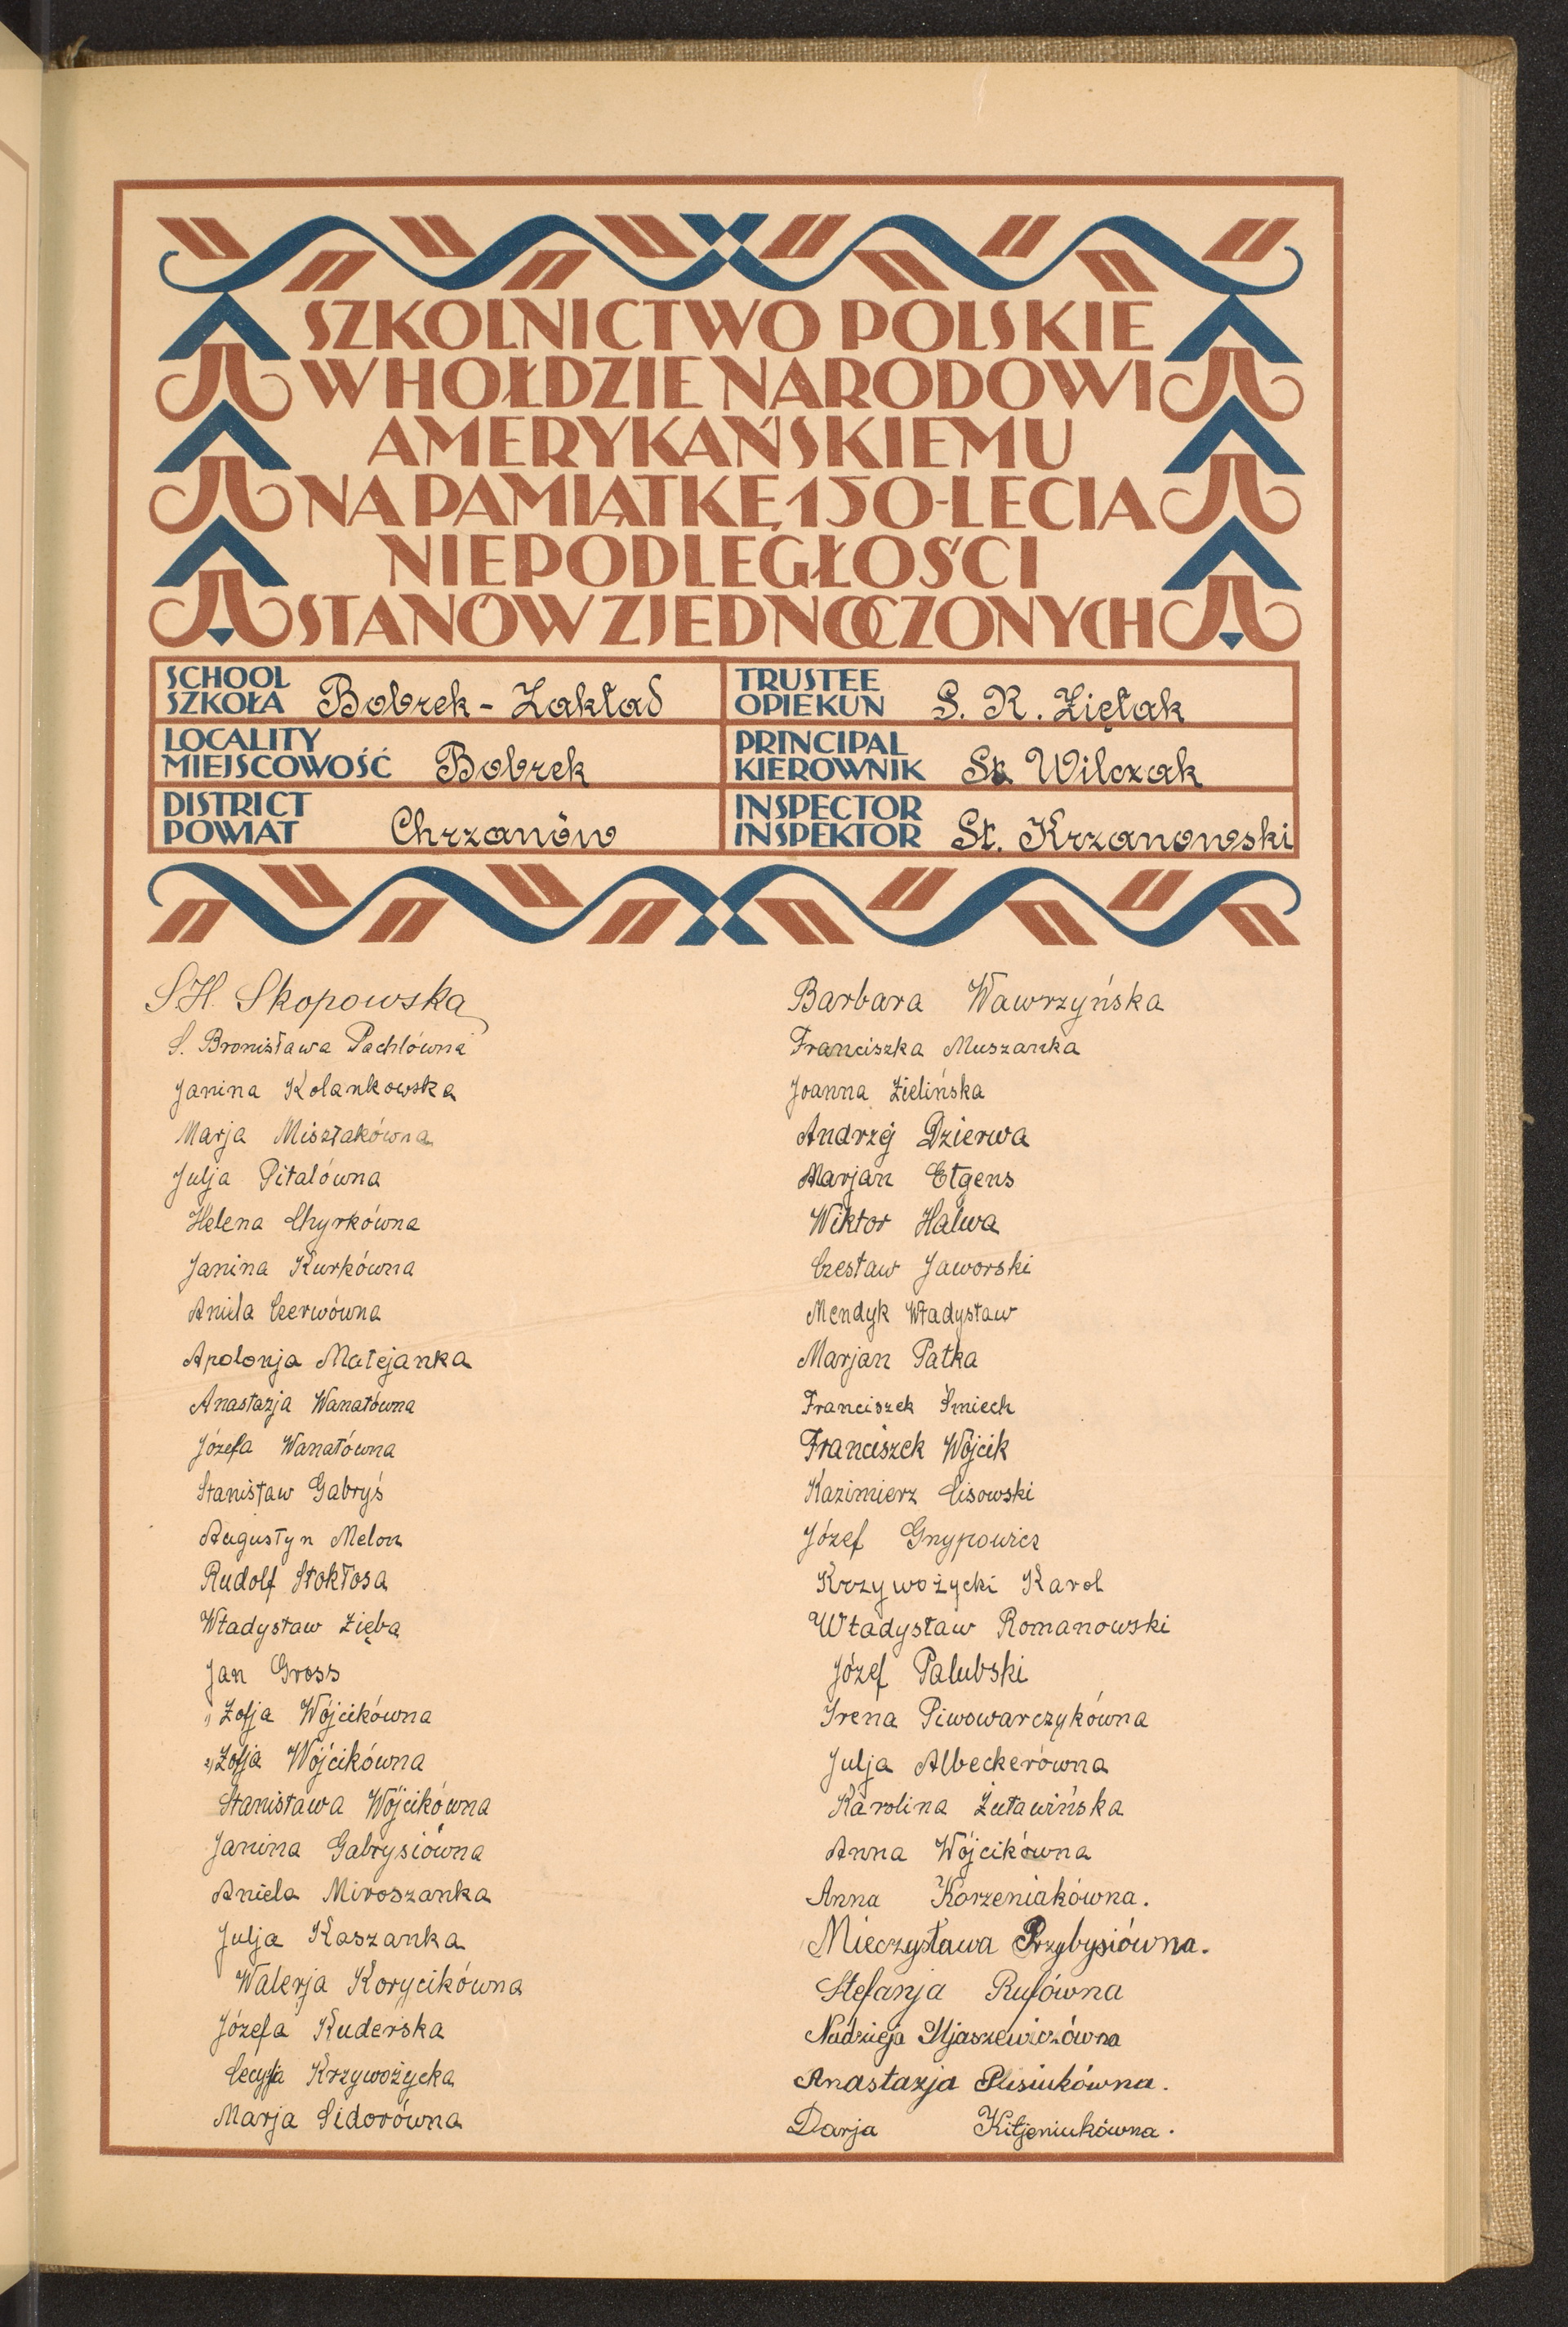 SZKOLNICTWO POLSKIE
W HOŁDZIE NARODOWI
AMERYKAŃSKIEMU
NA PAMIĄTKĘ 150-LECIA
NIEPODLEGŁOŚCI
STANÓW ZJEDNOCZONYCH
SCHOOL
SZKOŁA Bobrek - Zakład
TRUSTEE
OPIEKUN S. R. Ziętak
LOCALITY
MIEJSCOWOŚĆ Bobrek
PRINCIPAL
KIEROWNIK St. Wilczak
DISTRICT
POWIAT Chrzanów
INSPECTOR
INSPEKTOR St. Krzanowski
S.H. Skopowska
S. Bronisława Pachlówna
Janina Kolankowska
Marja Misztakówna
Julja Pitalówna
Helena Chyrkówna
Janina Kurkówna
Aniela Czerwówna
Apolonja Matejanka
Anastazja Wanatówna
Józefa Wanatówna
Stanisław Gabryś
Augustyn Melon
Rudolf Stokłosa
Władysław Zięba
Jan Gross
1) Zofja Wójcikówna
2) Zofja Wójcikówna
Stanisława Wójcikówna
Janina Gabrysiówna
Aniela Miroszanka
Julja Kaszanka
Walerja Korycikówna
Józefa Kuderska
Cecylja Krzywożycka
Marja Sidorówna
Barbara Wawrzyńska
Franciszka Muszanka
Joanna Zielińska
Andrzej Dzierwa
Marjan Etgens
Wiktor Halwa
Czesław Jaworski
Mendyk Władysław
Marjan Patka
Franciszek Śmiech
Franciszek Wójcik
Kazimierz Cisowski
Józef Gnypowicz
Krzywożycki Karol
Władysław Romanowski
Józef Palubski
Irena Piwowarczykówna
Julja Albeckerówna
Karolina Żuławińska
Anna Wójcikówna
Anna Korzeniakówna.
Mieczysława Przybysiówna.
Stefanja Rufówna
Nadzieja Iljaszewiczówna
Anastazja Plisiukówna.
Darja Kitjeniukówna.